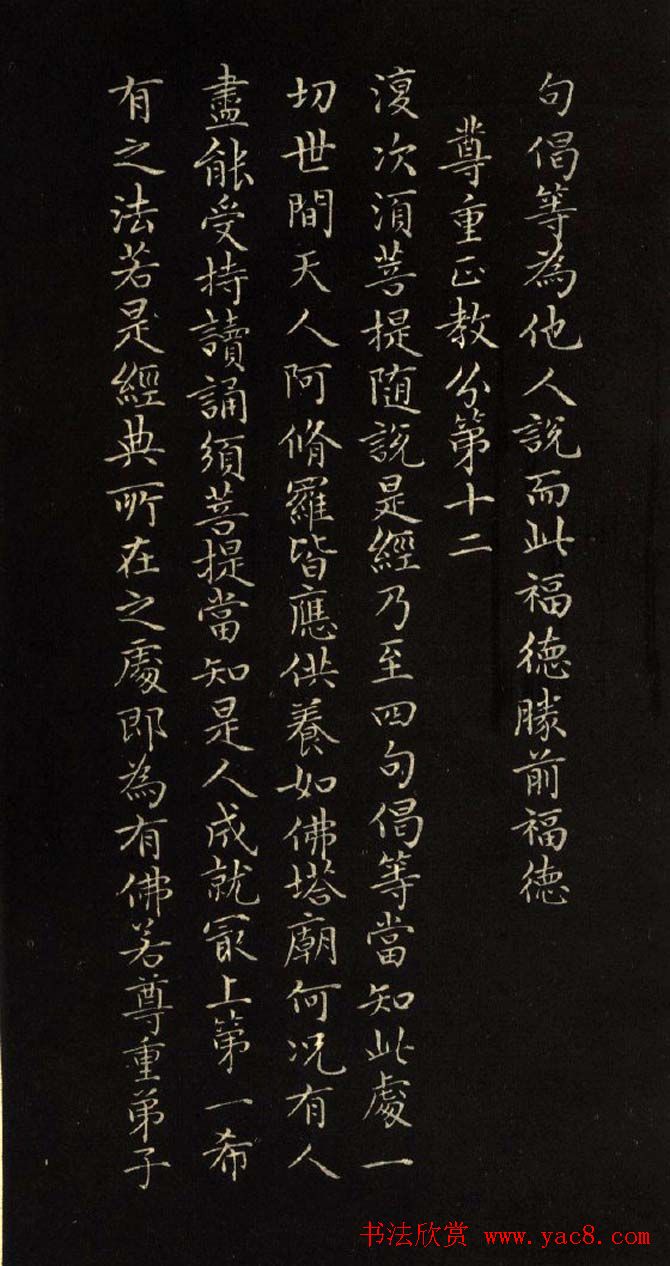 句偈等為他人說而此福德勝前福德
尊重正教分第十二
復次須菩提随說是經乃至四句偈等當知此處一
切世間天人阿脩羅皆應供養如佛塔廟何况有人
盡能受持讀誦須菩提當知是人成就冣上第一希
有之法若是經典所在之處即為有佛若尊重弟子
书法欣赏 www.yac8.com